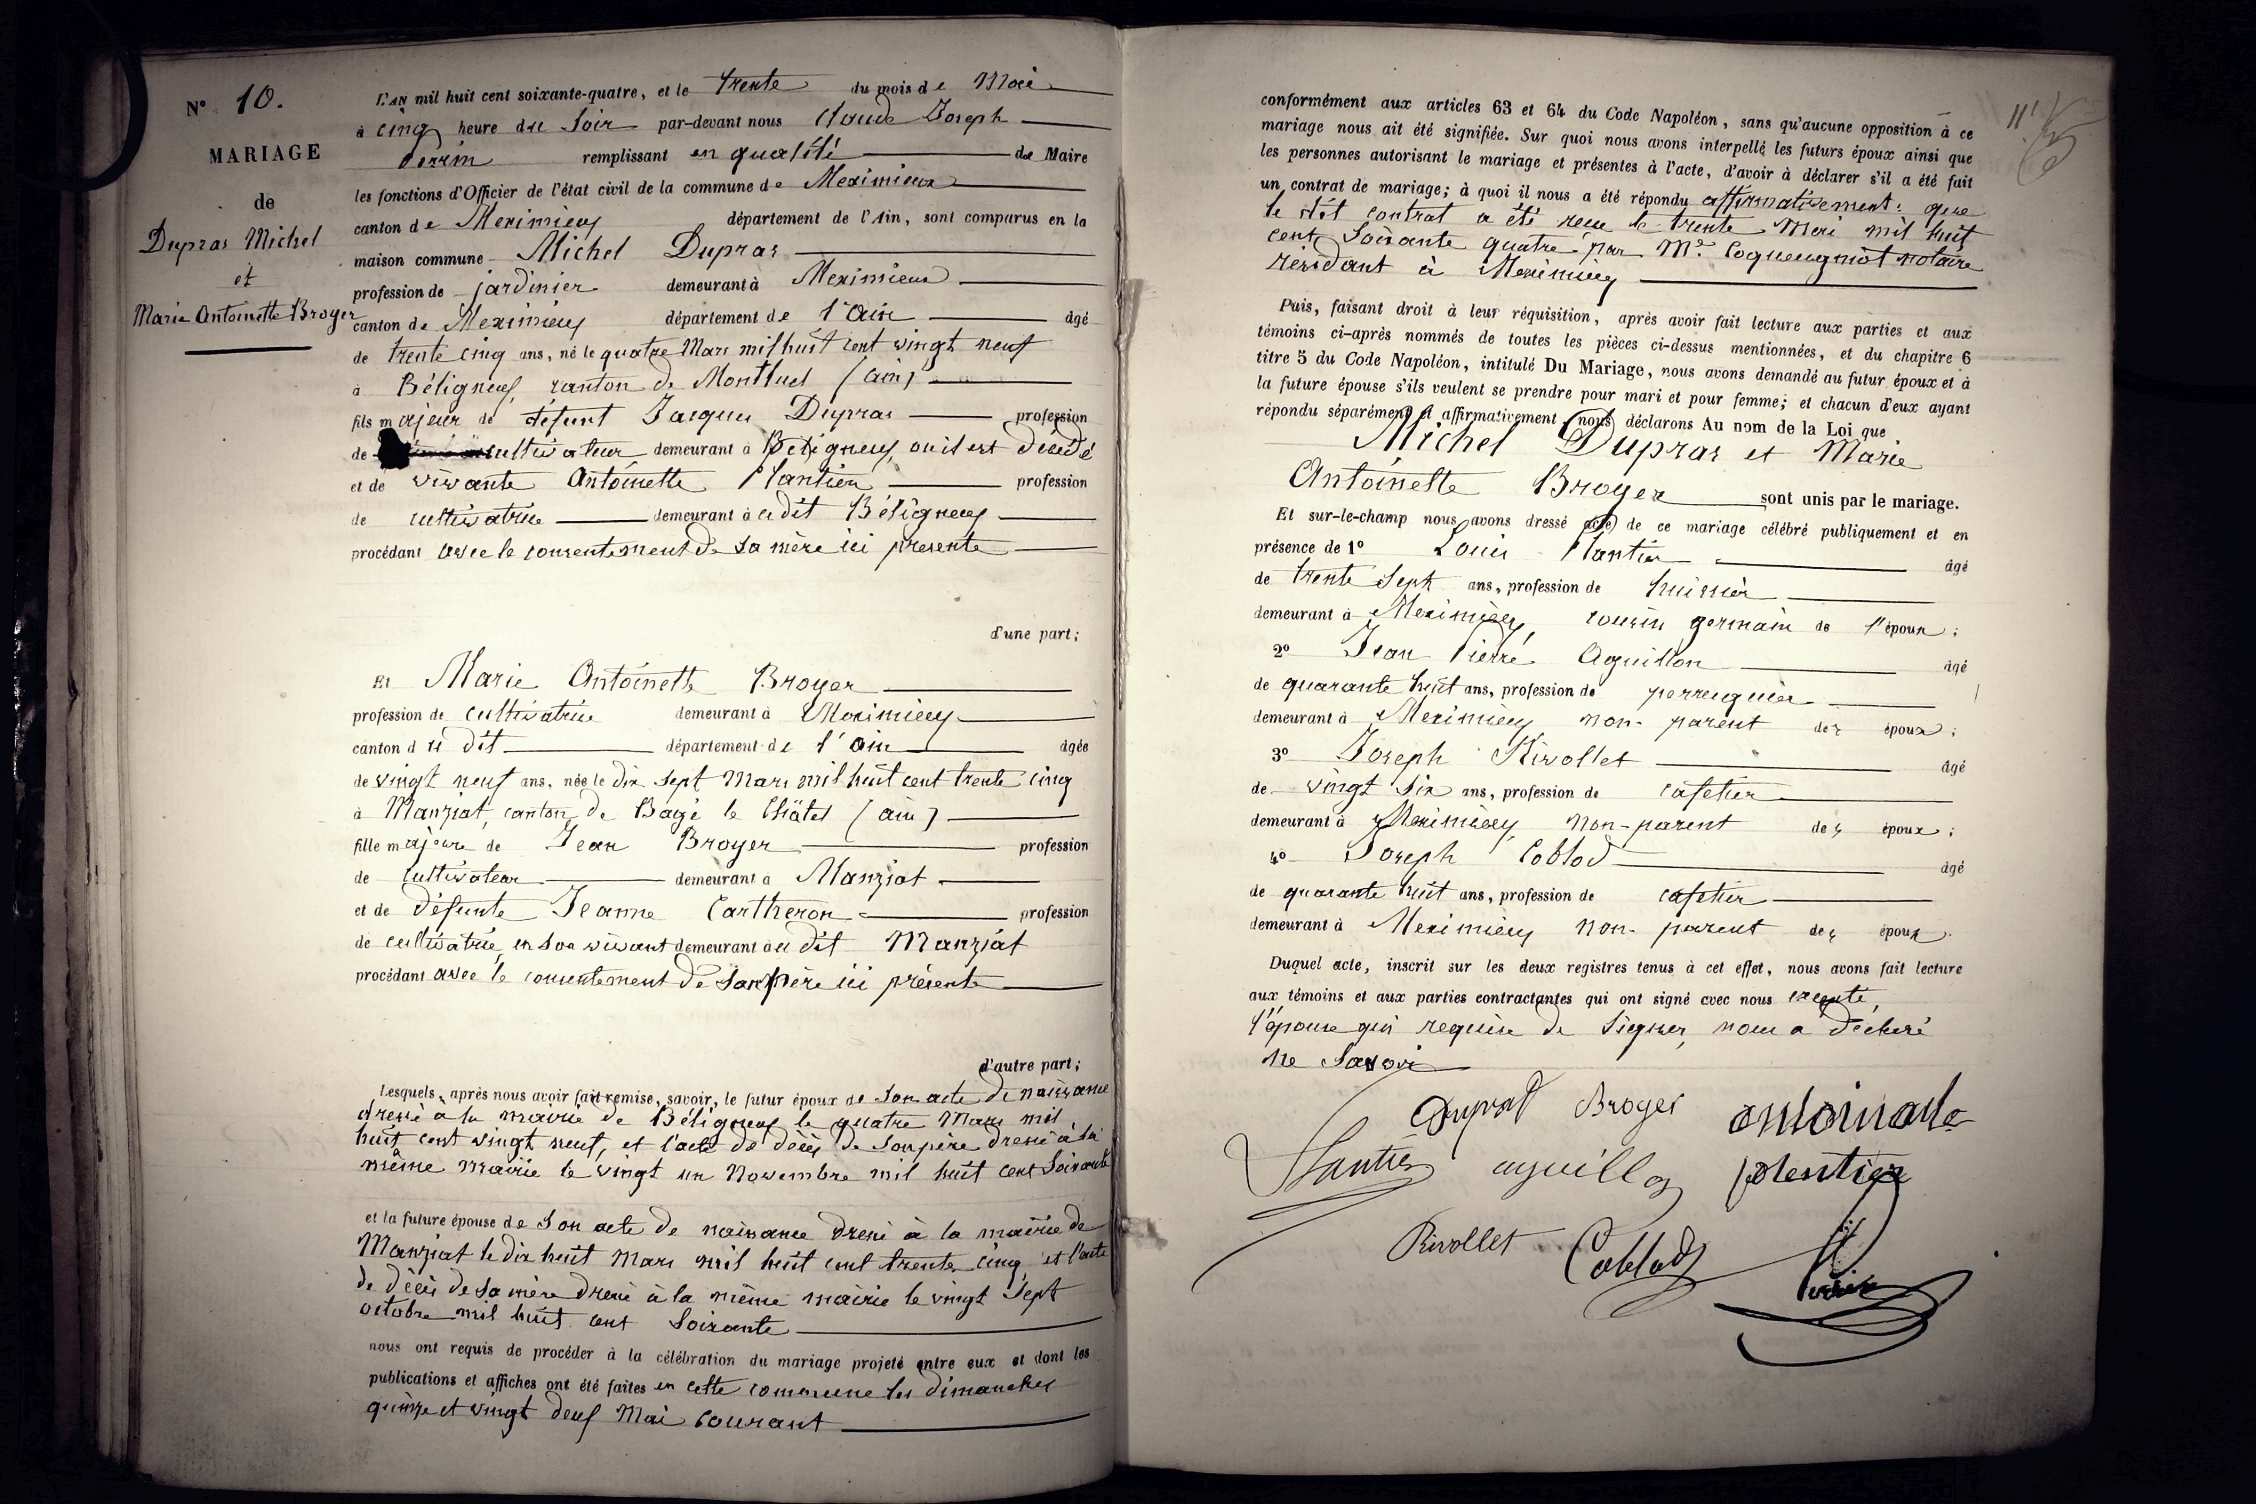 N° 10.
MARIAGE
de
Dupras Michel
et
Marie Antoinette Broyer
L'AN mil huit cent soixante-quatre, et le trente du mois de Mai
à cinq heure du Soir par-devant nous Claude Joseph
Perrin remplissant en qualité de Maire
les fonctions d'Officier de l'état civil de la commune de Meximieux
canton de Meximieux département de l'Ain, sont comparus en la
maison commune Michel Dupras
profession de jardinier demeurant à Meximieux
canton de Meximieux département de l'Ain âgé
de trente cinq ans, né le quatre Mars mil huit cent vingt neuf
à Béligneux, canton de Montluel (ain)
fils majeur de défunt Jacques Dupras profession
de cultivateur demeurant à Béligneux, ou il est décédé
et de vivante Antoinette Plantier profession
de cultivatrice demeurant à u dit Béligneux
procédant avec le consentement de sa mère ici presente
d'une part;
Et Marie Antoinette Broyer
profession de cultivatrice demeurant à Meximieux
canton du dit département de l'ain âgée
de vingt neuf ans, née le dix sept Mars mil huit cent trente cinq
à Manziat, canton de Bagé le Châtel (ain)
fille majeure de Jean Broyer profession
de Cultivateur demeurant à Manziat
et de défunte Jeanne Cartheron profession
de cultivatrice en son vivant demeurant au dit Manziat
procédant avec le consentement de son père ici présente
d'autre part;
Lesquels, après nous avoir fait remise, savoir, le futur époux de son acte de naissance
dressé à la mairie de Béligneux le quatre Mars mil
huit cent vingt neuf, et l'acte de décès de son père dressé à la
même mairie le vingt un Novembre mil huit cent Soixante
et la future épouse de son acte de naissance dressé à la mairie de
Manziat le dix huit Mars mil huit cent trente cinq et l'acte
de décès de sa mère dressé à la même mairie le vingt Sept
octobre mil huit cent Soixante
nous ont requis de procéder à la célébration du mariage projeté entre eux et dont les
publications et affiches ont été faites en cette commune les dimanches
quinze et vingt deux Mai courant
conformément aux articles 63 et 64 du Code Napoléon, sans qu'aucune opposition à ce
mariage nous ait été signifiée. Sur quoi nous avons interpellé les futurs époux ainsi que
les personnes autorisant le mariage et présentes à l'acte, d'avoir à déclarer s'il a été fait
un contrat de mariage; à quoi il nous a été répondu affirmativement: que
le dit contrat a été reçu le trente Mai mil huit
cent Soixante quatre par Me. Coqueugniot notaire
résidant à Meximieux
Puis, faisant droit à leur réquisition, après avoir fait lecture aux parties et aux
témoins ci-après nommés de toutes les pièces ci-dessus mentionnées, et du chapitre 6
titre 5 du Code Napoléon, intitulé Du Mariage, nous avons demandé au futur époux et à
la future épouse s'ils veulent se prendre pour mari et pour femme; et chacun d'eux ayant
répondu séparément et affirmativement, nous déclarons Au nom de la Loi que
Michel Dupras et Marie
Antoinette Broyer sont unis par le mariage.
Et sur-le-champ nous avons dressé acte de ce mariage célébré publiquement et en
présence de 1° Louis Plantier âgé
de trente Sept ans, profession de huissier
demeurant à Meximieux, cousin germain de l'époux;
2° Jean Pierre Aguillon âgé
de quarante huit ans, profession de perruquier
demeurant à Meximieux non-parent des époux;
3° Joseph Rivollet âgé
de vingt Six ans, profession de cafetier
demeurant à Meximieux, non-parent des époux;
4° Joseph Coblod âgé
de quarante huit ans, profession de cafetier
demeurant à Meximieux non-parent des époux.
Duquel acte, inscrit sur les deux registres tenus à cet effet, nous avons fait lecture
aux témoins et aux parties contractantes qui ont signé avec nous excepté,
l'épouse qui requise de Signer, nous a déclaré
ne Savoir
Duprat Broyer antoinade
Plantier aguillon plentier
Rivollet Coblod Perrin